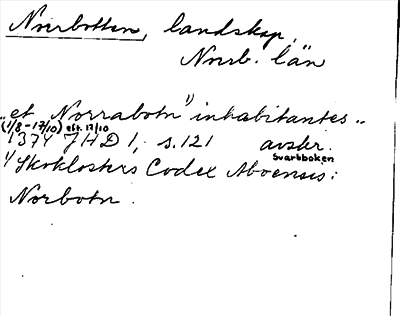 Norrbotten, landskap,
Norrb. län
"et Norrabotn" inhabitantes..
(1/8-17/10) eft. 17/10
1374 JHD 1, s.121 avskr.
Svartboken
4/ Skoklosters Codex Aboensis:
Norbotn.